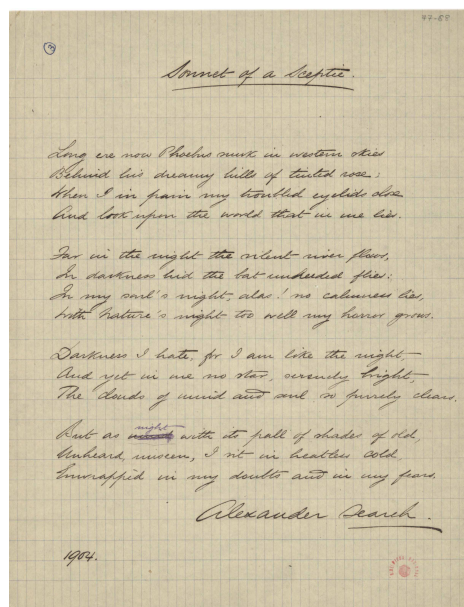 77-88
3
Sonnet of a Sceptic.
Long ere now Phoebus sunk in western skies
Behind his dreamy hills of tinted rose:
When I in pain my troubled eyelids close
And look upon the world that in me lies.
Far in the night the silent river flows,
In darkness hid the bat unheeded flies:
In my soul's night, alas! no calmness lies,
With Nature's night too well my horror grows.
Darkness I hate, for I am like the night,—
And yet in me no star, serenely bright,
The clouds of mind and soul so purely clears.
But as night with its pall of shades of old,
Unheard, unseen, I sit in heatless cold
Enwrapped in my doubts and in my fears.
Alexander Search.
1904.